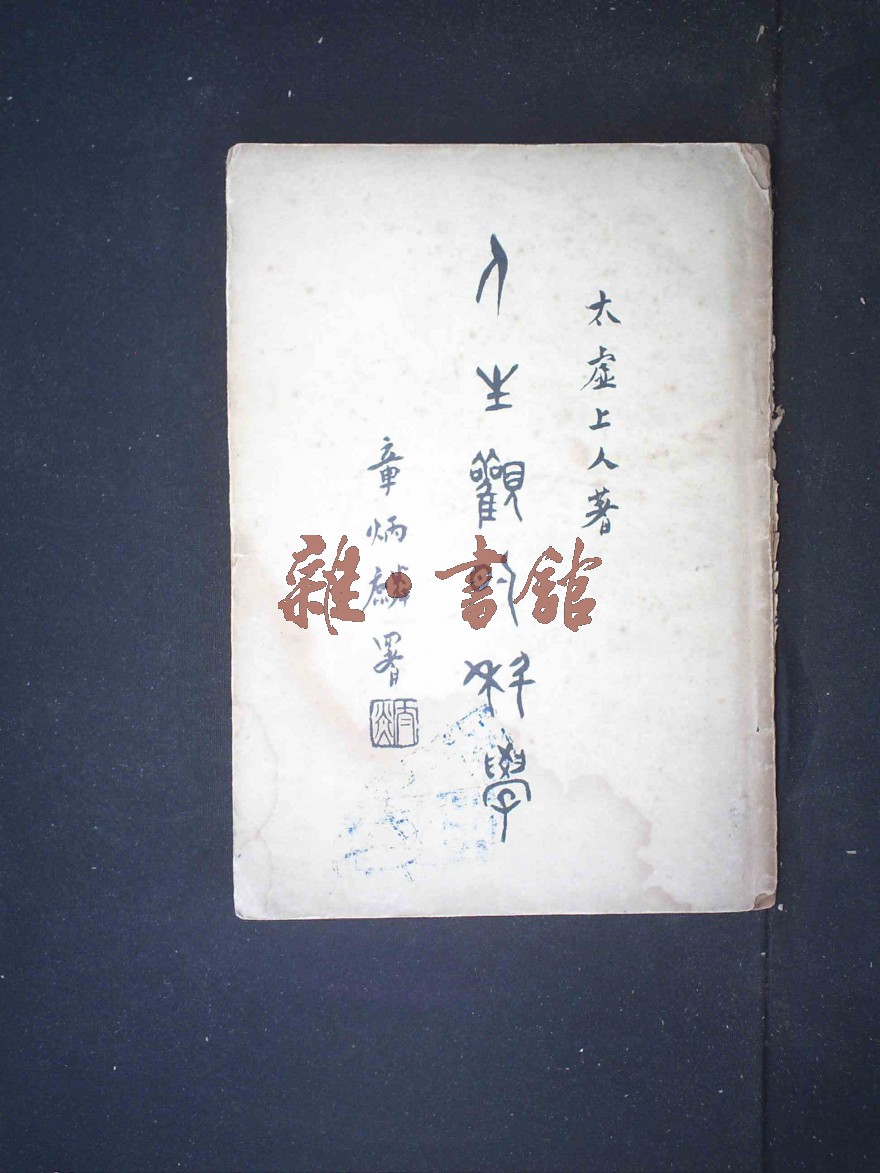 太虛上人著
人生觀的科學
章炳麟署
雜·書舘